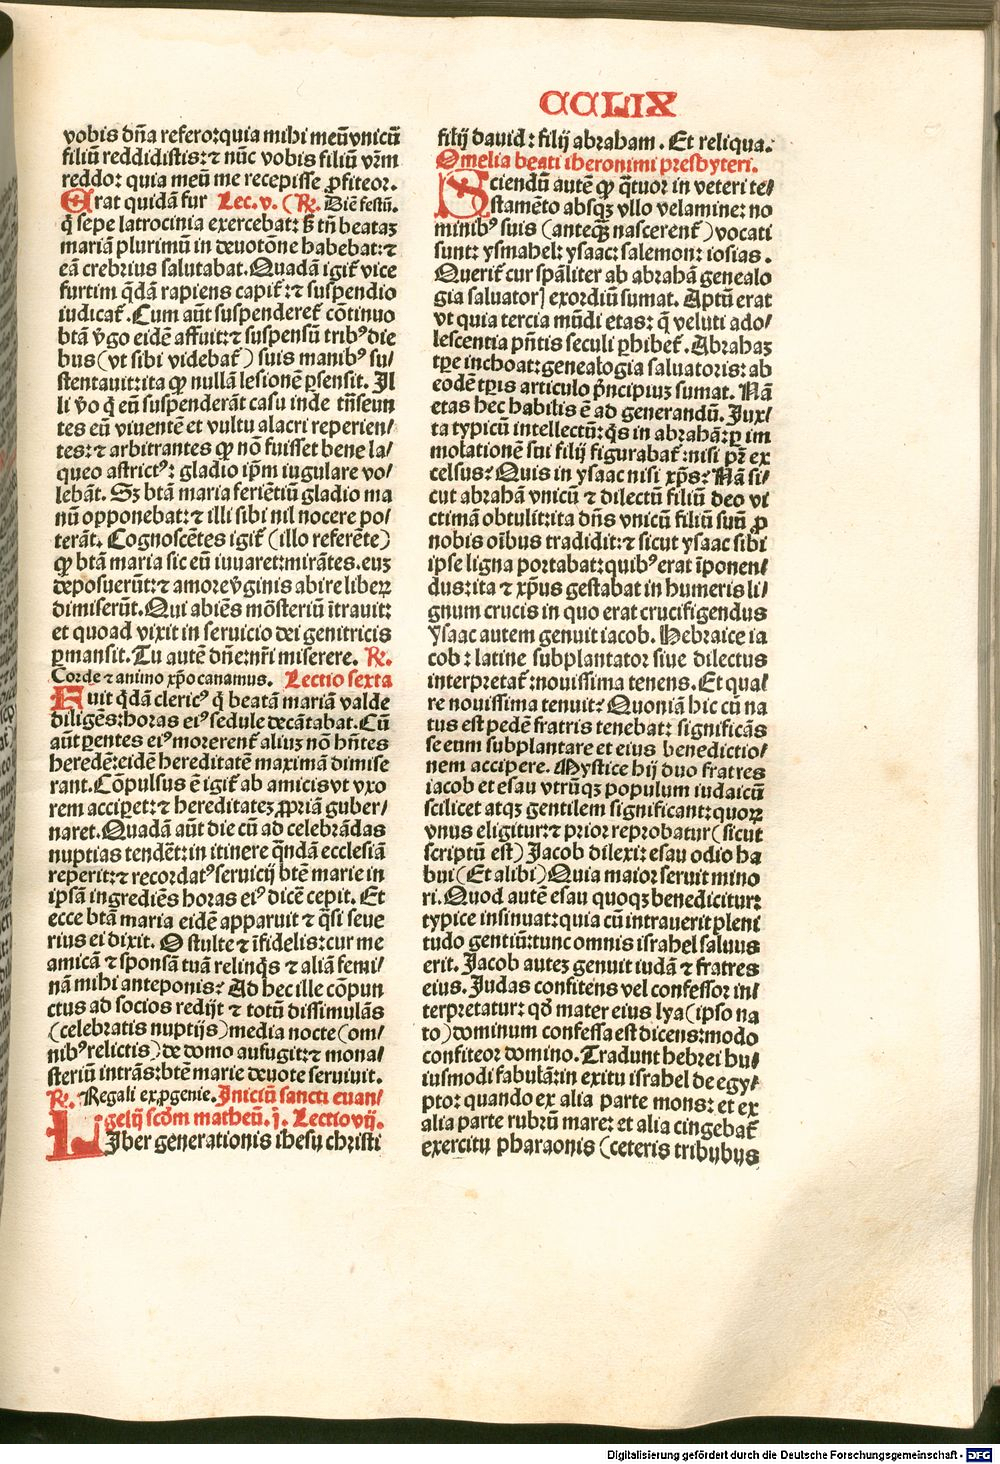 CCLIX
vobis dn̄a refero: quia mihi meū vnicū
filiū reddidistis: ⁊ nūc vobis filiū vr̄m
reddo: quia meū me recepisse ꝓfiteor.
Erat quidā fur Lec. v. (℟. Diē festū.
q̄ sepe latrocinia exercebat: s̄ tn̄ beataꝫ
mariā plurimū in deuotōne habebat: ⁊
eā crebrius salutabat. Quadā igit̄ vice
furtim q̄dā rapiens capit̄: ⁊ suspendio
iudicat̄. Cum aūt suspenderet̄ cōtinuo
btā v̄go eidē affuit: ⁊ suspensū tribꝰ die
bus (vt sibi videbat̄) suis manibꝰ su/
stentauit: ita ꝙ nullā lesionē ꝑsensit. Il
li v̄o q̄ eū suspenderāt casu inde trāseun
tes eū viuentē et vultu alacri reperien/
tes: ⁊ arbitrantes ꝙ nō fuisset bene la/
queo astrictꝰ: gladio ip̄m iugulare vo/
lebāt. Sꝫ btā maria feriētiū gladio ma
nū opponebat: ⁊ illi sibi nil nocere po/
terāt. Cognoscētes igit̄ (illo referēte)
ꝙ btā maria sic eū iuuaret: mirātes. euꝫ
deposuerūt: ⁊ amore v̄ginis abire liberꝝ
dimiserūt. Qui abiēs mōsteriū ītrauit:
et quoad vixit in seruicio dei genitricis
ꝑmansit. Tu autē dn̄e: nr̄i miserere. ℟.
Corde ⁊ animo xp̄o canamus. Lectio sexta
Fuit q̄dā clericꝰ q̄ beatā mariā valde
diligēs: horas eiꝰ sedule decātabat. Cū
aūt ꝑentes eiꝰ morerent̄ aliuꝫ nō hn̄tes
heredē: eidē hereditatē maximā dimise
rant. Cōpulsus ē igit̄ ab amicis vt vxo
rem acciꝑet: ⁊ hereditateꝫ ꝓpriā guber/
naret. Quadā aūt die cū ad celebrādas
nuptias tendēt: in itinere q̄ndā ecclesiā
reperit: ⁊ recordatꝰ seruicij btē marie in
ipsā ingrediēs horas eiꝰ dicē cepit. Et
ecce btā maria eidē apparuit ⁊ q̄si seue
rius ei dixit. O stulte ⁊ īfidelis: cur me
amicā ⁊ sponsā tuā relinq̄s ⁊ aliā femi/
nā mihi anteponis? Ad hec ille cōpun
ctus ad socios redijt ⁊ totū dissimulās
(celebratis nuptijs) media nocte (om/
nibꝰ relictis) de domo aufugit: ⁊ mona/
steriū intrās: btē marie deuote seruiuit.
℟. Regali ex ꝓgenie. Iniciū sancti euan/
gelij scd̄m matheū. j. Lectio vij.
LIber generationis ihesu christi
filij dauid: filij abraham. Et reliqua.
Omelia beati iheronimi presbyteri.
Sciendū autē ꝙ q̄tuor in veteri te/
stamēto absqꝫ vllo velamine: no
minibꝰ suis (anteqꝫ nascerent̄) vocati
sunt: ysmahel: ysaac: salemon: iosias.
Querit̄ cur spāliter ab abrahā genealo
gia saluatorꝭ exordiū sumat. Aptū erat
vt quia tercia mūdi etas: q̄ veluti ado/
lescentia pn̄tis seculi ꝑhibet̄. Abrahaꝫ
tꝑe inchoat: genealogia saluatoris: ab
eodē tꝑis articulo p̄ncipiuꝫ sumat. Nā
etas hec habilis ē ad generandū. Jux/
ta typicū intellectū: q̄s in abrahā: ꝑ im
molationē sui filij figurabat̄: nisi pr̄ ex
celsus? Quis in ysaac nisi xp̄s? Nā si/
cut abrahā vnicū ⁊ dilectū filiū deo vi
ctimā obtulit: ita dn̄s vnicū filiū suū ꝓ
nobis oībus tradidit: ⁊ sicut ysaac sibi
ipse ligna portabat: quibꝰ erat īponen/
dus: ita ⁊ xp̄us gestabat in humeris li/
gnum crucis in quo erat crucifigendus
Ysaac autem genuit iacob. Hebraice ia
cob: latine subplantator siue dilectus
interpretat̄: nouissima tenens. Et qua/
re nouissima tenuit? Quoniā hic cū na
tus est pedē fratris tenebat: significās
se eum subplantare et eius benedictio/
nem accipere. Mystice hij duo fratres
iacob et esau vtrūqꝫ populum iudaicū
scilicet atqꝫ gentilem significant: quoꝝ
vnus eligitur: ⁊ prior reprobatur (sicut
scriptū est) Jacob dilexi: esau odio ha
bui (Et alibi) Quia maior seruit mino
ri. Quod autē esau quoqꝫ benedicitur:
typice insinuat: quia cū intrauerit pleni
tudo gentiū: tunc omnis israhel saluus
erit. Jacob auteꝫ genuit iudā ⁊ fratres
eius. Judas confitens vel confessor in/
terpretatur: qd̄ mater eius lya (ipso na
to) dominum confessa est dicens: modo
confiteor domino. Tradunt hebrei hu/
iusmodi fabulā: in exitu israhel de egy/
pto: quando ex alia parte mons: et ex
alia parte rubrū mare: et alia cingebat̄
exercitu pharaonis (ceteris tribubus
Digitalisierung gefördert durch die Deutsche Forschungsgemeinschaft - DFG